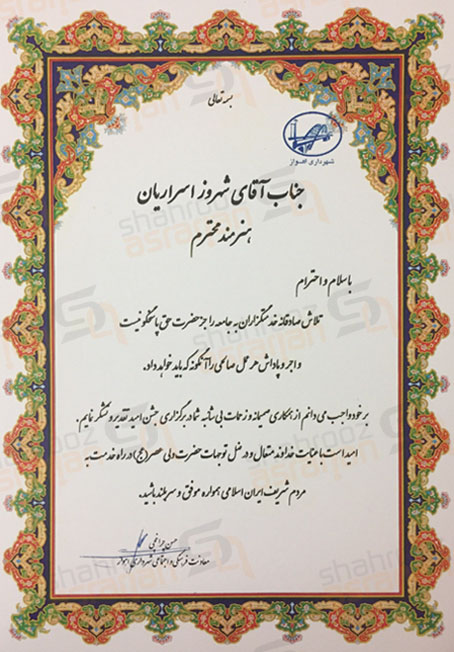 بسمه تعالی
شهرداری اهواز
جناب آقای شهروز اسراریان
هنرمند محترم
با سلام و احترام
تلاش صادقانه خدمتگزاران به جامعه را جز حضرت حق پاسخگو نیست
و اجر و پاداش هر عمل صالحی را آنگونه که باید خواهد داد.
بر خود واجب می دانم از همکاری صمیمانه و زحمات بی شائبه شما در برگزاری جشن امید تقدیر و تشکر نمایم.
امید است با عنایات خداوند متعال و در ظل توجهات حضرت ولی عصر (عج) در راه خدمت به
مردم شریف ایران اسلامی همواره موفق و سربلند باشید.
حسن چراغچی
معاونت فرهنگی و اجتماعی شهرداری اهواز
shahrooz
asrarian